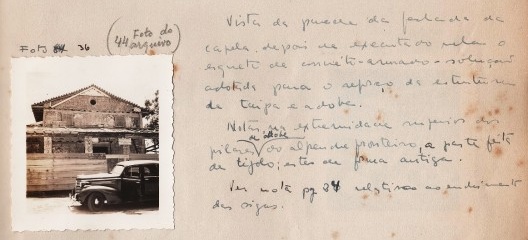 Foto 36
(Foto do
44 arquivo)
Vista da parede da fachada da
capela, depois de executado nela o
esqueleto de concreto-armado - solução
adotada para o reforço da estrutura
de taipa e adobe.
Notar, na extremidade superior dos
adobe
pilares do alpendre fronteiro, a parte feita
de tijolo; estes de forma antiga.
Ver nota pg 84 relativa ao
das vigas.